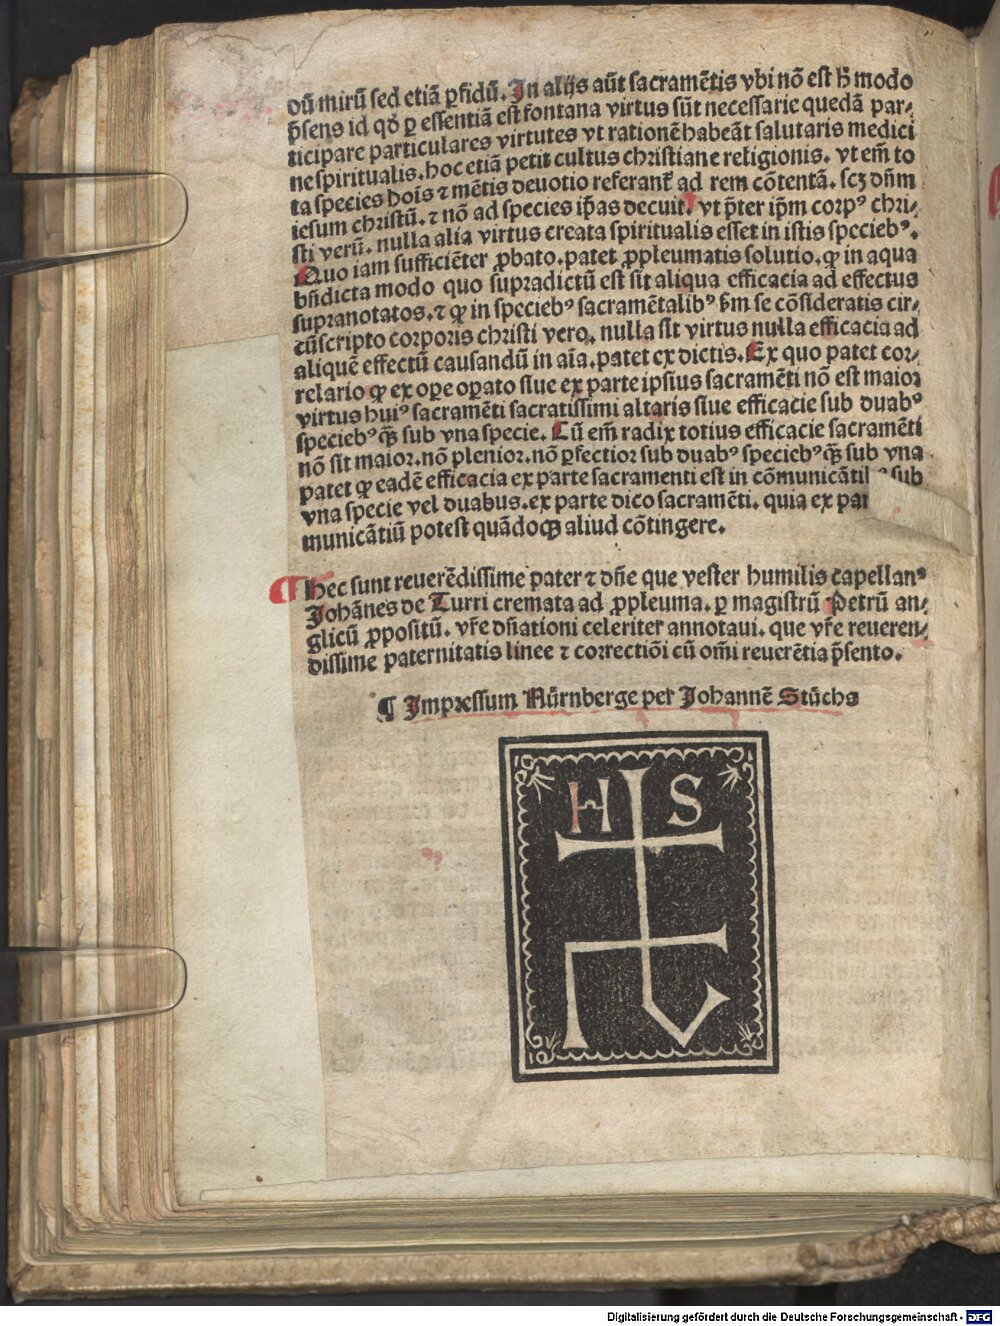 dū mirū sed etiā ꝑfidū. In alijs aūt sacramētis vbi nō est h̄ modo
p̄sens id qđ ꝑ essentiā est fontana virtus sūt necessarie quedā par⸗
ticipare particulares virtutes vt rationē habeāt salutaris medici
ne spiritualis. hoc etiā petit cultus christiane religionis. vt em̄ to
ta species hoīs ⁊ mētis deuotio referant᷑ ad rem cōtentā. scꝫ dn̄m
iesum christū. ⁊ nō ad species ip̄as decuit. vt p̄ter ip̄m corpꝰ chri⸗
sti verū. nulla alia virtus creata spiritualis esset in istis speciebꝰ.
Quo iam sufficiēter ꝓbato. patet ꝓpleumatis solutio. ꝙ in aqua
bn̄dicta modo quo supradictū est sit aliqua efficacia ad effectus
supranotatos. ⁊ ꝙ in speciebꝰ sacramētalibꝰ ẜm se cōsideratis cir⸗
cūscripto corporis christi vero. nulla sit virtus nulla efficacia ad
aliquē effectū causandū in aīa. patet ex dictis. Ex quo patet cor⸗
relario ꝙ ex oꝑe oꝑato siue ex parte ipsius sacramēti nō est maior
virtus huiꝰ sacramēti sacratissimi altaris siue efficacie sub duabꝰ
speciebꝰ q̄ꝫ sub vna specie. Cū em̄ radix totius efficacie sacramēti
nō sit maior. nō plenior. nō ꝑfectior sub duabꝰ speciebꝰ q̄ꝫ sub vna
patet ꝙ eadē efficacia ex parte sacramenti est in cōmunicātib sub
vna specie vel duabus. ex parte dico sacramēti. quia ex par
municātiū potest quādoqꝫ aliud cōtingere.
¶ Hec sunt reuerēdissime pater ⁊ dn̄e que vester humilis capellanꝰ
Johānes de Turri cremata ad ꝓpleuma. ꝑ magistrū Petrū an⸗
glicū ꝓpositū. vr̄e dn̄ationi celeriter annotaui. que vr̄e reueren⸗
dissime paternitatis linee ⁊ correctiōi cū om̄i reuerētia p̄sento.
¶ Impressum Nürnberge per Johannē Stüchs
H S
Digitalisierung gefördert durch die Deutsche Forschungsgemeinschaft - DFG